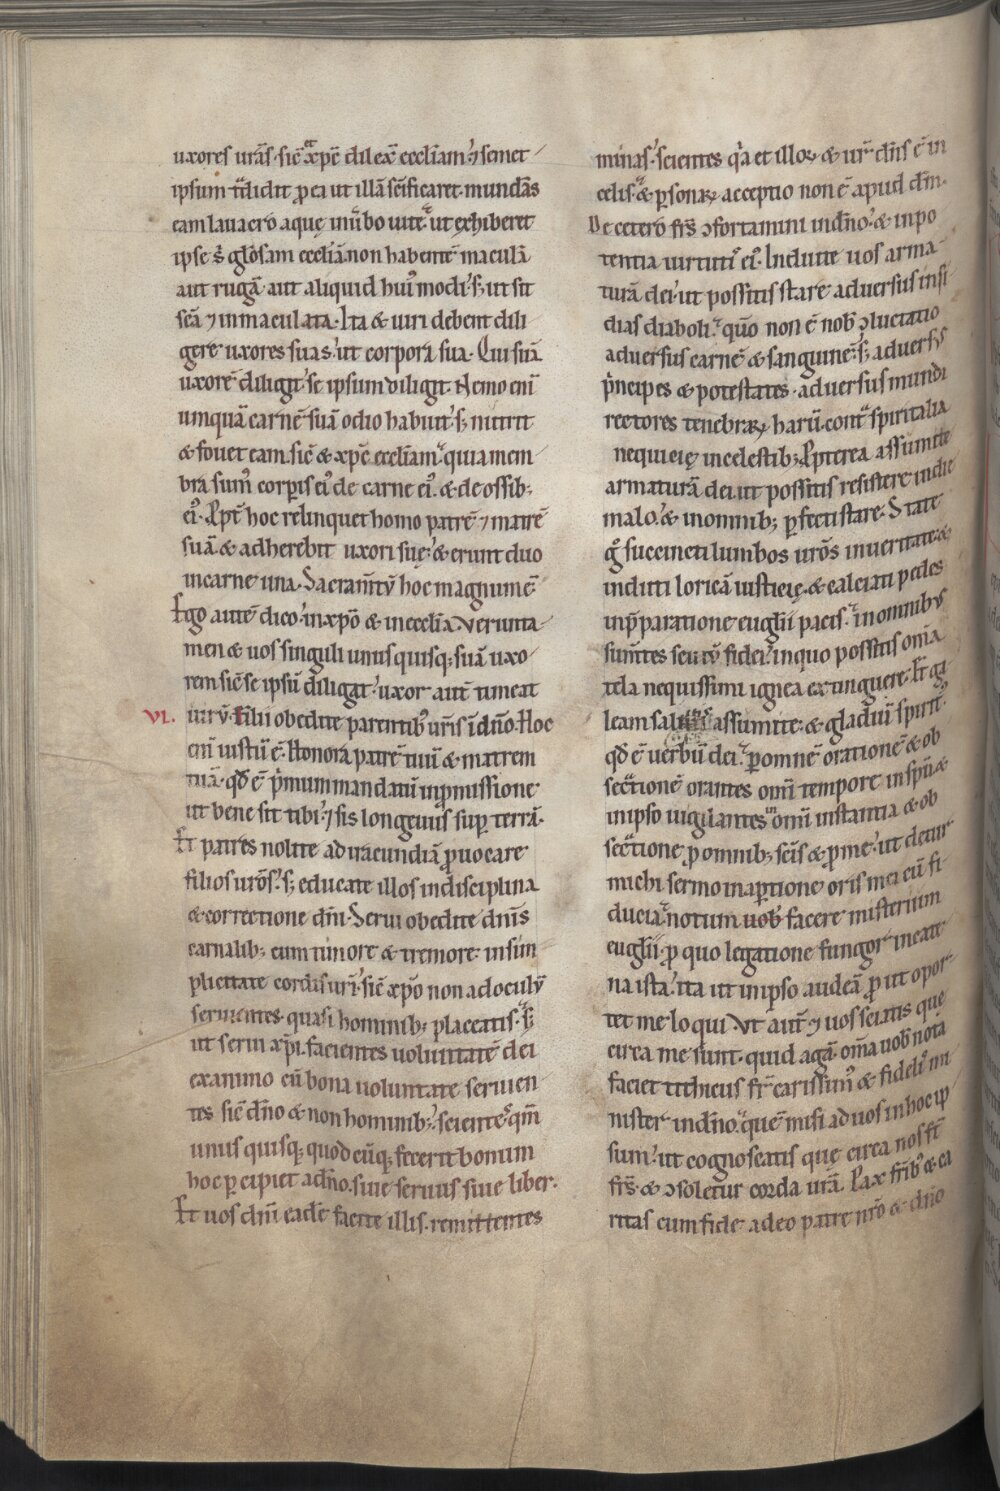 uxores uras. sic̄ et xp̄c dilex̄ eccl̄iam. ⁊ semet
ipsum t̄didit p ea ut illā sc̄ificaret. mundās
eam lauacro aquę in uerbo uitę. ut exhiberet
ipse s̄ gl̄osam eccl̄iā. non habentē maculā
aut rugā. aut aliquid hui' modi. s; ut sit
sc̄a ⁊ inmaculata. Ita & uiri debent dili
gere uxores suas. ut corpora sua. Qui suā
uxorē diligit. se ipsum diligit. Nemo eni
umquā carnē suā odio habuit. s; nutrit
& fouet eam. sic̄ & xp̄c eccl̄iam. quia mem
bra sum' corpis ei' de carne ei'. & de ossib;
ei'. Ppt̄ hoc relinquet homo patrē ⁊ matrē
suā. & adherebit uxori suę. & erunt duo
in carne una. Sacram̄tū hoc magnum ē.
Ego autē dico. in xp̄o & in eccl̄ia. Verunta
men & uos singuli unus quisq; suā uxo
rem sic̄ se ipsū diligat. uxor aut̄ timeat
VI. uirū. Filii obedite parentib' ur̄is in dn̄o. Hoc
eni iustū ē. Honora patrē tuū & matrem
tuā. qd̄ ē p̄mum mandatū in p̄missione
ut bene sit tibi. ⁊ sis longeuus sup terrā.
Et patres nolite ad iracundiā puocare
filios ur̄os. s; educate illos in disciplina
& correctione dn̄i. Serui obedite dn̄is
carnalib; cum timore & tremore. in sim
plicitate cordis uri. sic̄ xp̄o non ad oculū
seruientes. quasi hominib; placentes. s;
ut serui xp̄i. facientes uoluntatē dei
ex animo cū bona uoluntate seruien
tes sic̄ dn̄o & non hominib;. scientes qm̄
unus quisq; quodcūq; fecerit bonum
hoc percipiet a dn̄o. siue seruus siue liber.
Et uos dn̄i eadē facite illis. remittentes
minas. scientes q̄a et illoꝝ & ur̄ dn̄s ē in
celis. & psonaꝝ acceptio non ē apud dm̄.
De cetero fr̄s ꝯfortamini in dn̄o. & in po
tentia uirtutis ei'. Induite uos arma
turā dei. ut possitis stare aduersus insi
dias diaboli. qm̄ non ē nob' ꝯluctatio
aduersus carnē & sanguinē. s; aduersus
p̄ncipes & potestates. aduersus mundi
rectores tenebraꝝ harū. cont̄ spiritalia
nequicię in celestib;. Ppterea assumite
armaturā dei. ut possitis resistere in die
malo. & in omnib; pfecti stare. State
g̊ succincti lumbos ur̄os in ueritate. &
induti loricā iusticię. & calciati pedes
in p̄paratione eugl̄ii pacis. in omnibus
sum̄tes scutū fidei. in quo possitis om̄ia
tela nequissimi ignea extinguere. Et ga
leam salutis assumite. & gladiū spirit'
qd̄ ē uerbū dei. p omnē orationē & ob
sec̄tionē orantes om̄i tempore in sp̄u. &
in ipso uigilantes in om̄i instantia & ob
sec̄tione p omnib; sc̄is & p me. ut detur
michi sermo in aptione oris mei cū fi
ducia. notum uob' facere misterium
eugl̄ii. p quo legatione fungor in cate
na ista. ita ut in ipso audeā p ut opor
tet me loqui. Vt aut̄ ⁊ uos sciatis que
circa me sunt. quid agā. om̄a uob' nota
faciet tithicus fr̄ carissim' & fidel' mi
nister in dn̄o. quē misi ad uos in hoc ip
sum. ut cognoscatis quę circa nos st̄
fr̄s. & ꝯsoletur corda ur̄a. Pax fr̄ib' & ca
ritas cum fide. a deo patre nr̄o & dn̄o